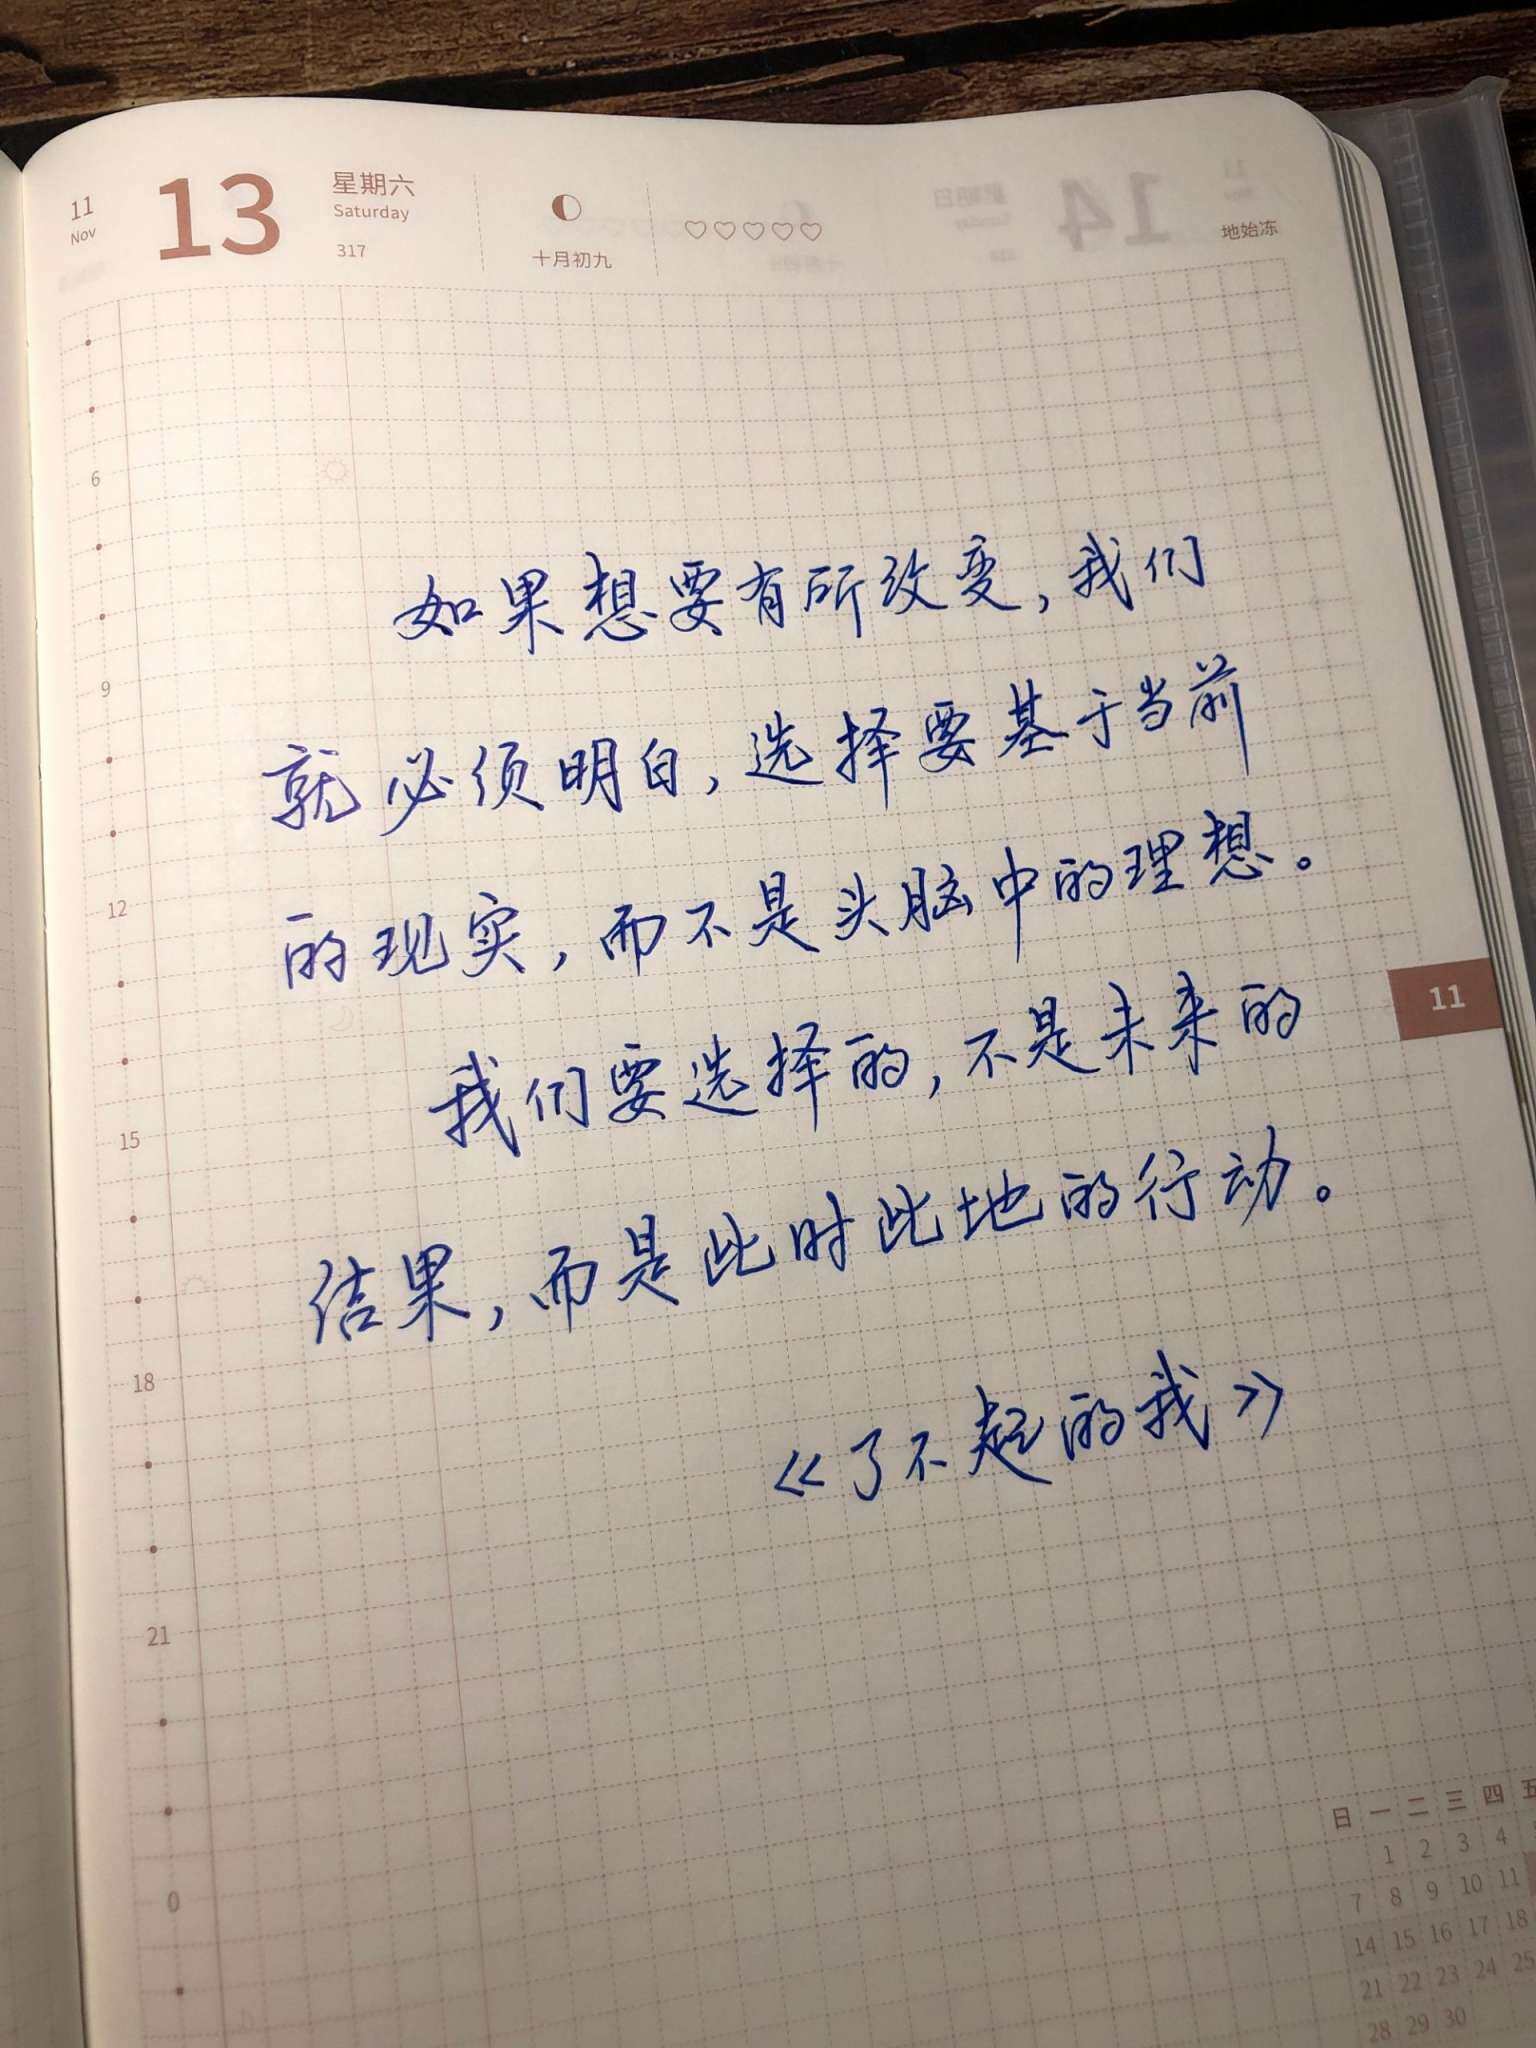 11
Nov
13
星期六
Saturday
317
十月初九
地始冻
6
9
12
15
18
21
0
如果想要有所改变，我们
就必须明白，选择要基于当前
的现实，而不是头脑中的理想。
我们要选择的，不是未来的
结果，而是此时此地的行动。
《了不起的我》
11
日 一 二 三 四 五
1 2 3 4
7 8 9 10 11
14 15 16 17 18
21 22 23 24 25
28 29 30